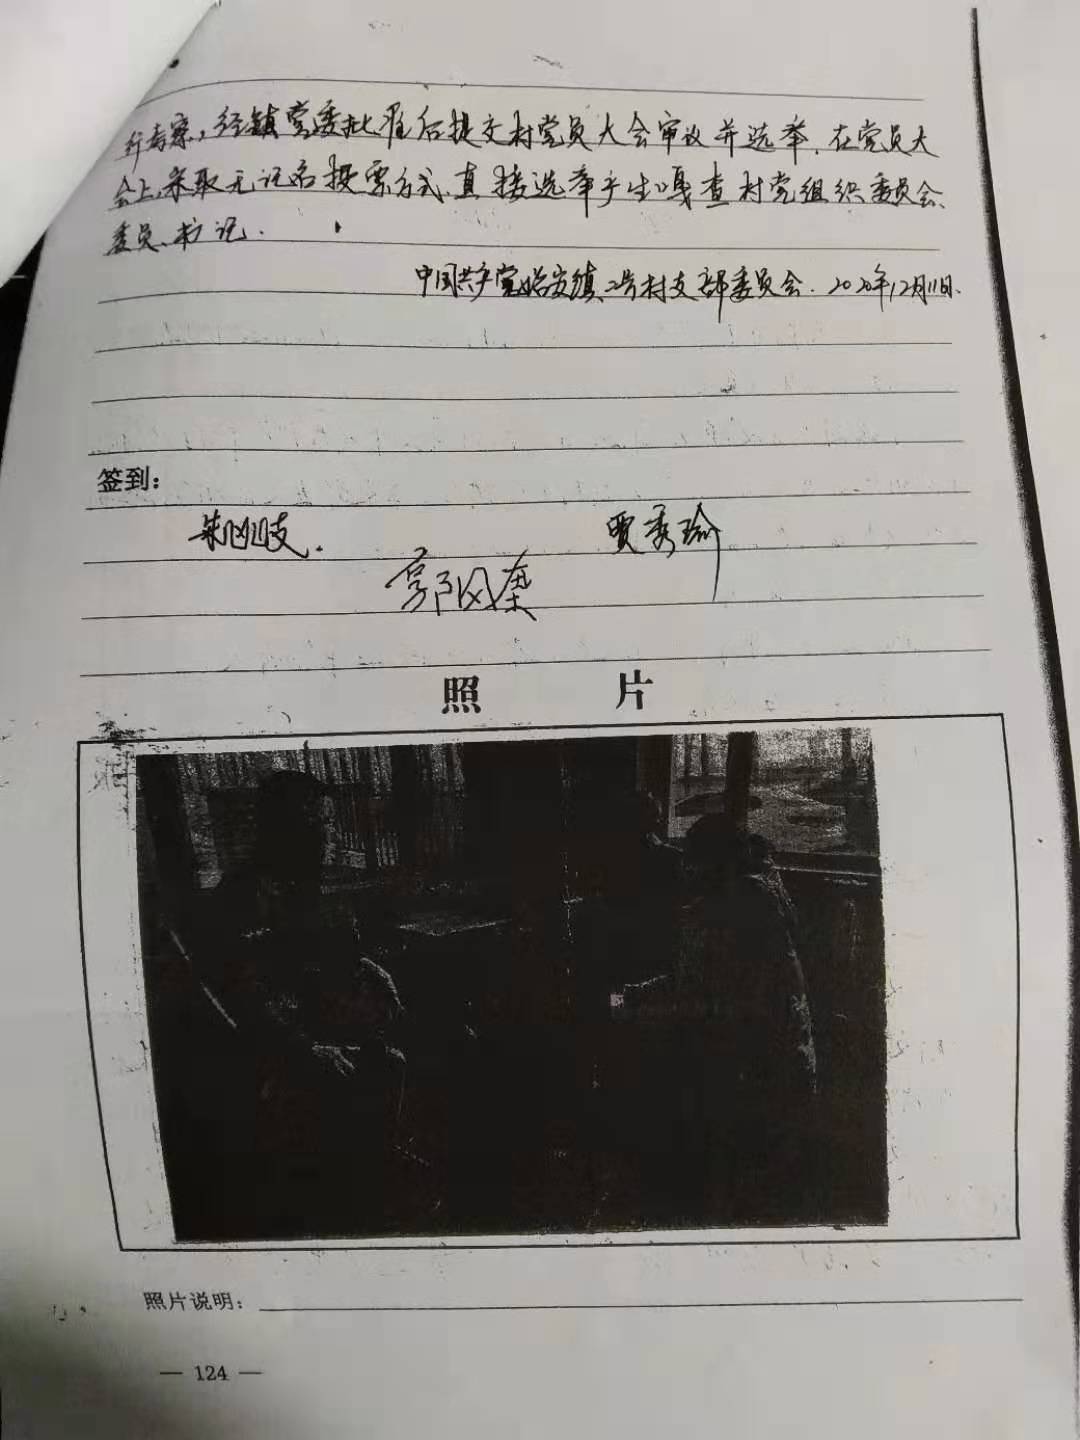 行考察，经镇党委批准后提交村党员大会审议并选举．在党员大
会上，采取无记名投票方式，直接选举产生嘎查村党组织委员会、
委员、书记．
中国共产党始发镇二号村支部委员会．2020年12月11日．
签到：
朱凤岐．
贾秀瑜
郭凤
照 片
照片说明：
— 124 —